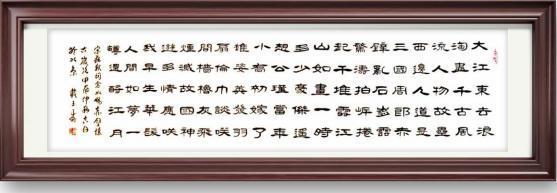 大江東去浪
淘盡千古風
流人物故壘
西邊人道是
三國周郎赤
壁亂石崩雲
驚濤拍岸捲
起千堆雪江
山如畫一時
多少豪傑遙
想公瑾當年
小喬初嫁了
雄姿英發羽
扇綸巾談笑
間檣櫓灰飛
煙滅故國神
遊多情應笑
我早生華髮
人間如夢一
樽還酹江月
宋蘇軾詞念奴嬌赤壁懷
古歲次甲辰仲
於北京